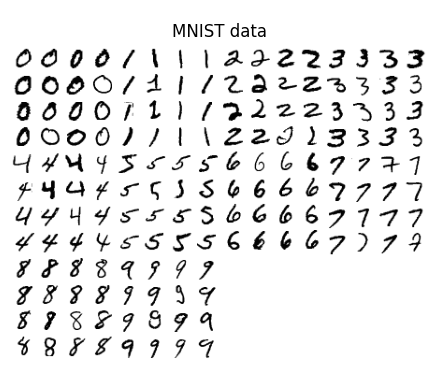 MNIST data
0 0 0 0 1 1 1 1 2 2 2 2 3 3 3 3
0 0 0 0 1 1 1 1 2 2 2 2 3 3 3 3
0 0 0 0 1 1 1 1 2 2 2 2 3 3 3 3
0 0 0 0 1 1 1 1 2 2 2 2 3 3 3 3
4 4 4 4 5 5 5 5 6 6 6 6 7 7 7 7
4 4 4 4 5 5 5 5 6 6 6 6 7 7 7 7
4 4 4 4 5 5 5 5 6 6 6 6 7 7 7 7
4 4 4 4 5 5 5 5 6 6 6 6 7 7 7 7
8 8 8 8 9 9 9 9
8 8 8 8 9 9 9 9
8 8 8 8 9 9 9 9
8 8 8 8 9 9 9 9